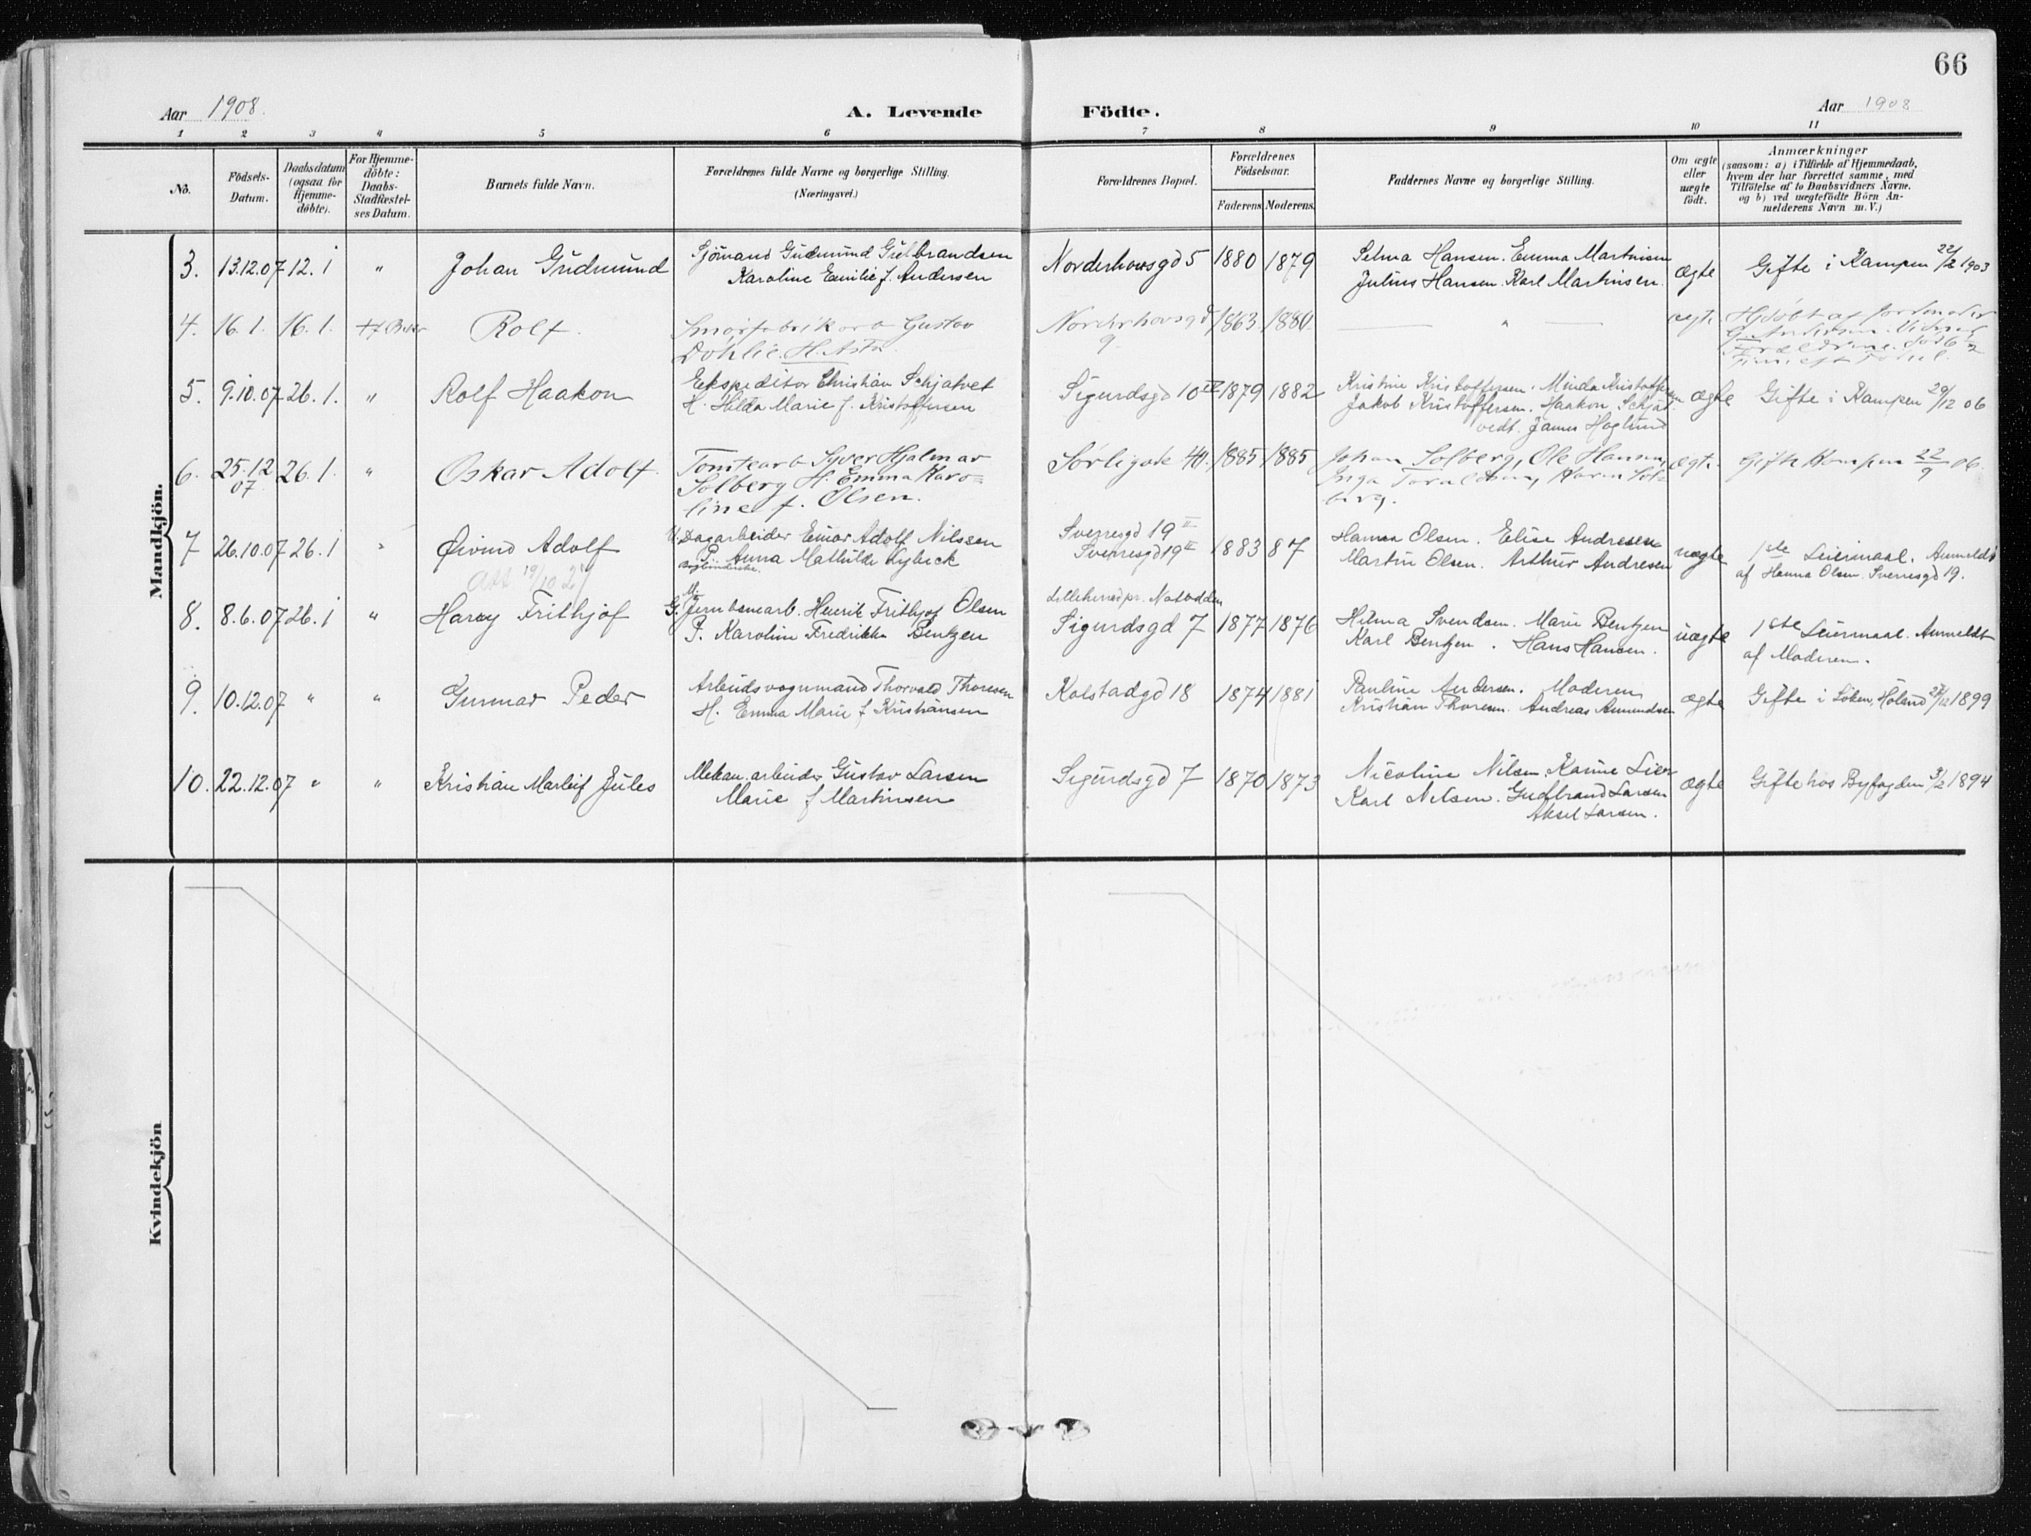 66
Aar 1908. A. Levende Födte. Aar 1908
1 2 3 4 5 6 7 8 9 10 11
No. Födsels-Datum. Daabsdatum (ogsaa for Hjemme-döbte). For Hjemme-döbte: Daabs-Stadfæstel-ses Datum. Barnets fulde Navn. Forældrenes fulde Navne og borgerlige Stilling. (Næringsvei.) Forældrenes Bopæl. Forældrenes Födselsaar. Faderens Moderens. Faddernes Navne og borgerlige Stilling. Om ægte eller uægte födt. Anmærkninger (saasom: a) i Tilfælde af Hjemmedaab, hvem der har forrettet samme, med Tilföielse af to Daabsvidners Navne. og b) ved uægtefödte Börn An-melderens Navn m. V.)
Mandkjön.
3. 13.12.07 12.1 " Johan Gudmund Sjömand Gudmund Gulbrandsen
Karoline Emilie f. Andersen Norderhovsgd 5 1880 1879 Selma Hansen. Emma Martinsen
Julius Hansen. Karl Martinsen. ægte Gifte i Kampen 22/2 1903
4. 16.1. 16.1. Rolf. Gustav
Döhlie. H. Asta Norderhovsgd
9 1863 1880 — " — ægte Hjdöbt af Jordmoder
5. 9.10.07 26.1. " Rolf Haakon Ekspeditör Christian Schjatvet
H. Hilda Marie f. Kristoffersen Sigurdsgd 10 IV 1879 1882 Kristine Kristoffersen. Minda Kristoffersen
Jakob Kristoffersen. Haakon Schjat-
vedt. James Haglund ægte Gifte i Kampen 29/12 06
6. 25.12
07. 26.1. " Oskar Adolf. Tomtearb Syver Hjalmar
Solberg H. Emma Karo=
line f. Olsen. Sörligade 40. 1885 1885 Johan Solberg, Ole Hansen,
Inga Karen Sol-
berg. ægte. Gifte Kampen 22/9 06.
7 26.10.07 26.1 " Öivind Adolf
Att 19/10 27 U. Dagarbeider Einar Adolf Nilssen
P. Anna Mathilde Lybeck Sverresgd 19 II
Sverresgd 19 II 1883 87 Hanna Olsen. Elise Andresen
Martin Olsen. Arthur Andresen uægte 1ste Leiermaal. Anmeldt
af Hanna Olsen. Sverresgd 19.
8. 8.6.07 26.1 " Harry Frithjof G. Jernbanearb. Henrik Frithjof Olsen
P. Karoline Fredrikke Bentzen Lilleherred pr. Notodden
Sigurdsgd 7 1877 1876 Hilma Svendsen. Marie Bentzen
Karl Bentzen. Hans Hansen. uægte 1ste Leiermaal. Anmeldt
af Moderen.
9. 10.12.07 " " Gunnar Peder Arbeidsvognmand Thorvald Thoresen
H. Emma Marie f. Kristiansen Kolstadgd 18 1874 1881 Pauline Andersen. Moderen
Kristian Thoresen. Andreas Amundsen ægte Gifte i Löken, Höland 1899
10. 22.12.07 " " Kristian Marleif Jules Mekan. arbeider Gustav Larsen
Marie f Martinsen Sigurdsgd 7 1870 1873 Nicoline Nilsen Karine Lier
Karl Nilsen. Gudbrand Larsen
Aksel Larsen. ægte Gifte hos Byfogden 3/2 1894
Kvindekjön